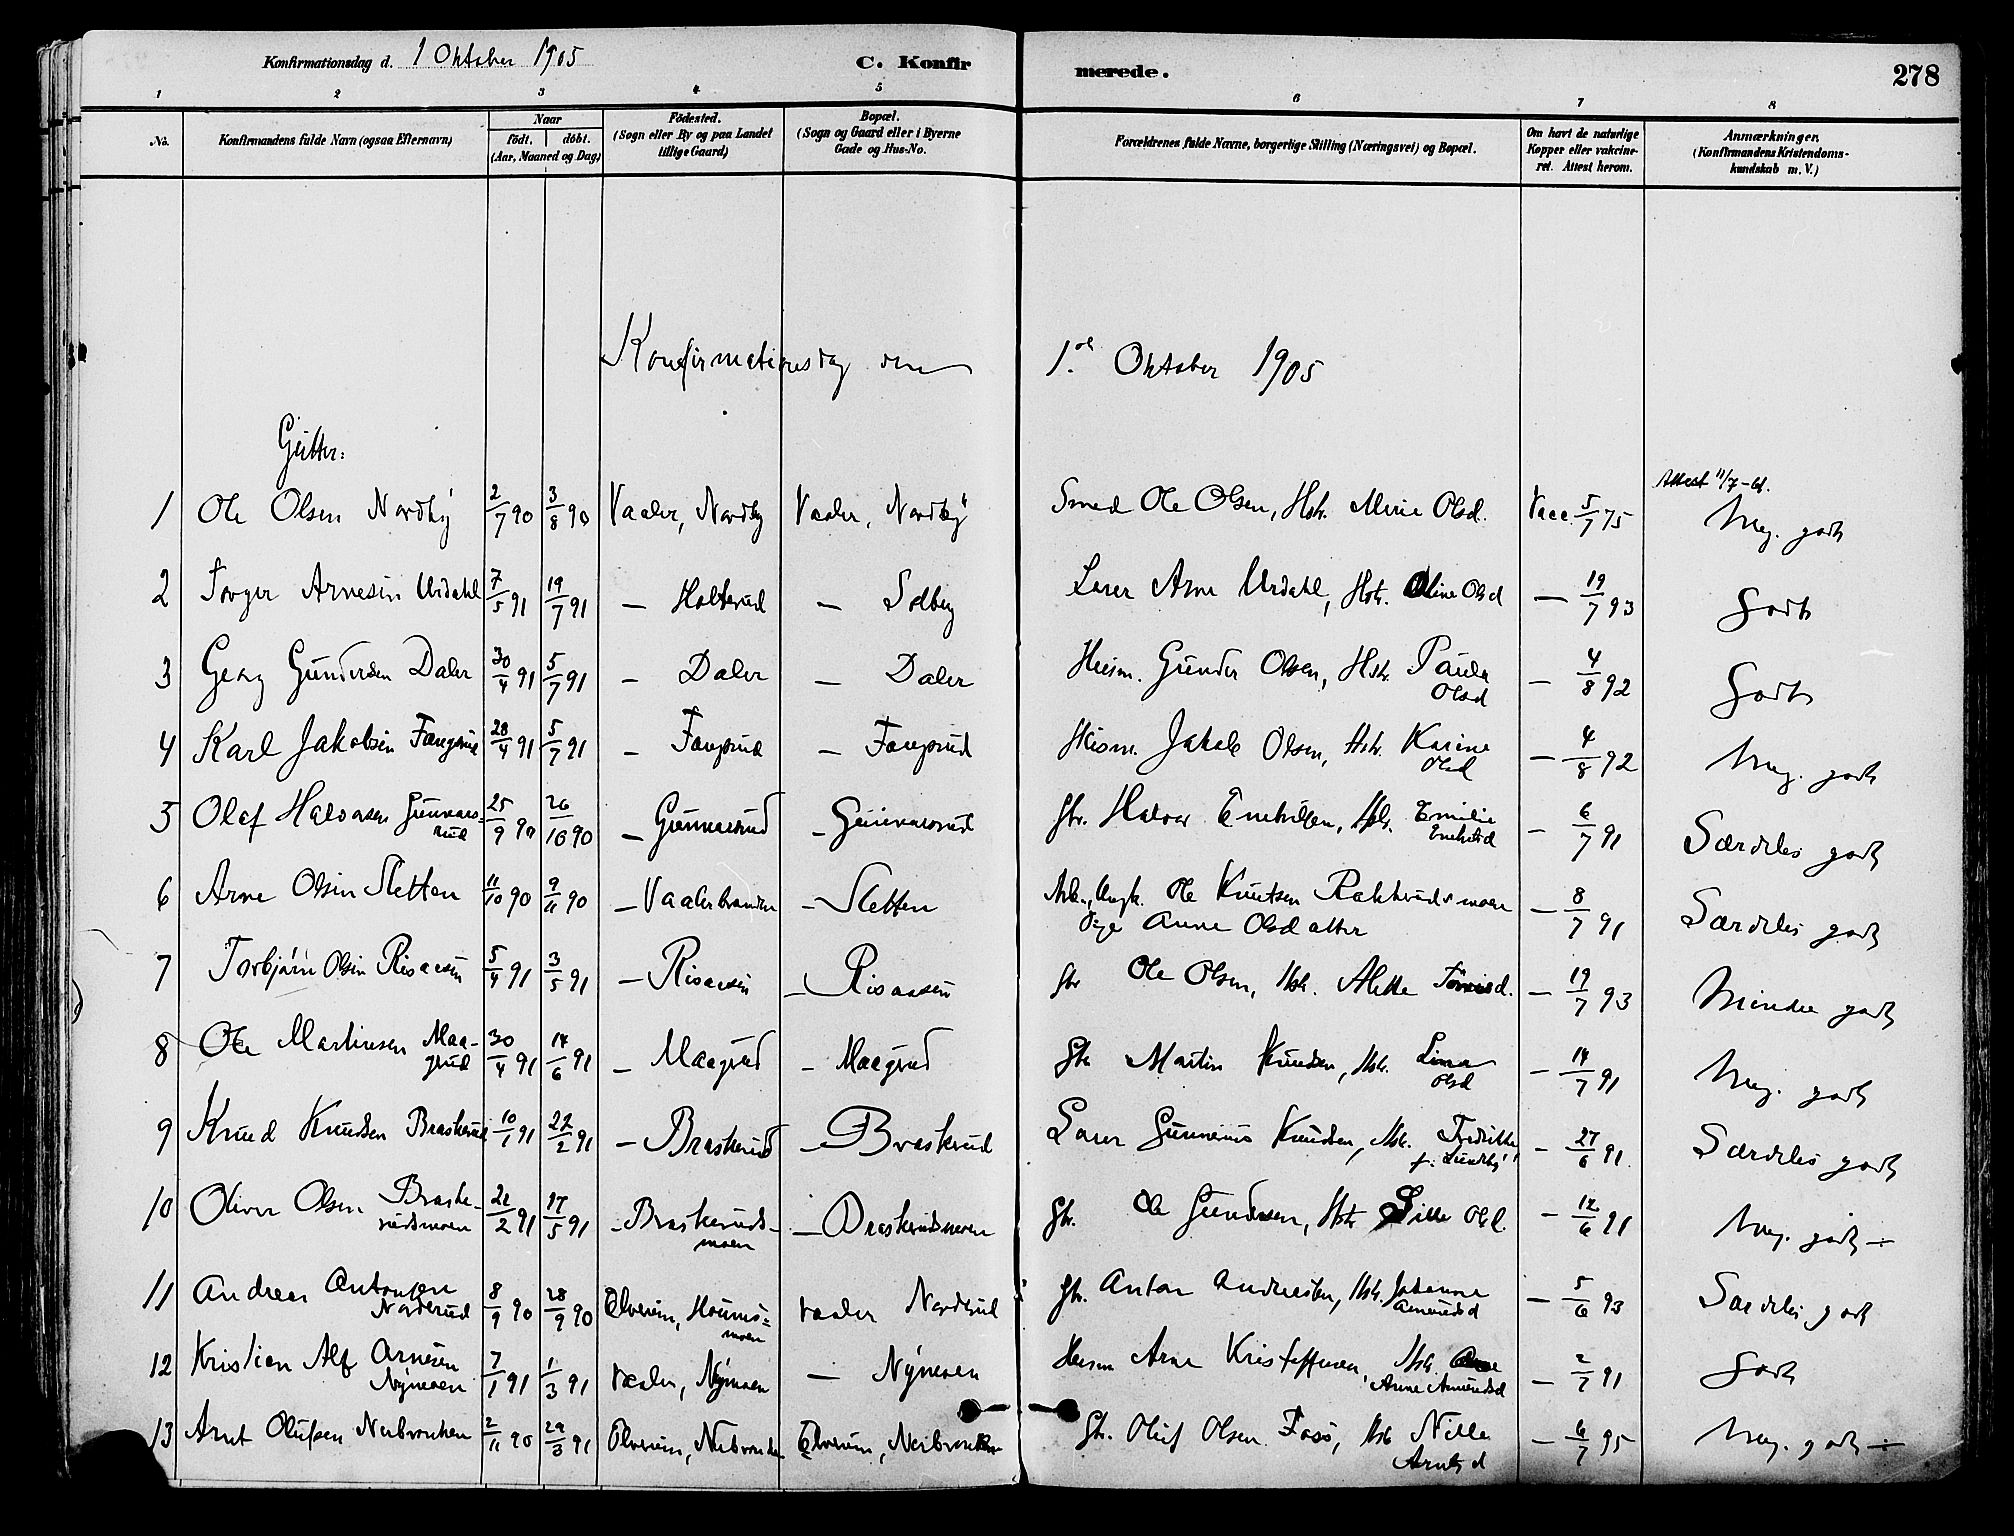 Konfirmationsdag d. 1 Oktober 1905
C. Konfirmerede.
278
1 2 3 4 5 6 7 8
No.
Konfirmandens fulde Navn (ogsaa Efternavn)
Naar
födt. döbt.
(Aar, Maaned og Dag)
Födested.
(Sogn eller By og paa Landet
tillige Gaard)
Bopæl.
(Sogn og Gaard eller i Byerne
Gade og Hus-No.
Forældrenes fulde Navne, borgerlige Stilling (Næringsvei) og Bopæl.
Om havt de naturlige
Kopper eller vakcine-
ret. Attest herom.
Anmærkninger.
(Konfirmandens Kristendoms-
kundskab m. V.)
Konfirmationsdag den 1. Oktober 1905
Gutter:
Attest 11/7-
1 Ole Olsen Nordby 2/7 90 3/8 90 Vaaler, Nordby Vaaler, Nordby Smed Ole Olsen, Hstr. Mine Olsd. Vacc. 5/7 75 Meg. godt
2 Torger Arnesen Urdahl 7/5 91 19/7 91 — Holterud — Solberg Lærer Arne Urdahl, Hstr. Oline Olsd — 19/7 93 Godt
3 Georg Gundersen Daler 30/4 91 5/7 91 — Daler — Daler Husm. Gunder Olsen, Hstr. Paula
Olsd — 4/8 92 Godt
4 Karl Jakobsen Fangrud 28/4 91 5/7 91 — Fangrud — Fangrud Husm. Jakob Olsen, Hstr. Karine
Olsd — 4/8 92 Meg. godt
5 Olaf Halvorsen Gunnars-
rud 25/9 90 26/10 90 — Gunnarsrud — Gunnarsrud Gbr. Halvor Enekilsen, Hstr. Emilie
— 6/7 91 Særdeles godt
6 Arne Olsen Sletten 11/10 90 9/11 90 — Vaalerbranden — Sletten Arb., Ungk. Ole Knutsen
Pige Anne Olsdatter — 8/7 91 Særdeles godt
7 Torbjørn Olsen Risaasen 5/4 91 3/5 91 — Risaasen — Risaasen Gbr Ole Olsen, Hstr. Alette — 19/7 93 Mindre godt
8 Ole Martinsen Maa-
grud 30/4 91 14/6 91 — Maagrud — Maagrud Gbr Martin Knudsen, Hstr. Lina
Olsd — 14/7 91 Meg. godt
9 Knud Knudsen Braskerud 10/1 91 22/2 91 — Braskerud — Braskerud Lærer Gunnerius Knudsen, Hstr. Fredrikke
f. Lundby — 27/6 91 Særdeles godt
10 Oliver Olsen Braske-
rudsmoen 21/2 91 17/5 91 — Braskeruds-
moen — Braskerudsmoen Gbr. Ole Gundersen, Hstr Lille Olsd. — 12/6 91 Meg. godt ÷
11 Andreas Antonsen
Norderud 8/9 90 28/9 90 Elverum, Hounis-
moen Vaaler Norderud Gbr. Anton Andreasen, Hstr. Johanne
Amundsd — 5/6 93 Særdeles godt
12 Kristian Alf Arnesen
Nymoen 7/1 91 1/3 91 Vaaler, Nymoen — Nymoen Husm Arne Kristoffersen, Hstr.
Anne Amundsd — 2/7 91 Godt
13 Arnt Olufsen Nerbronken 2/11 90 29/3 91 Elverum, Nerbronken Elverum, Nerbronken Gbr. Oluf Olsen Fosö, Hstr Nille
Arntsd — 6/7 95 Meg. godt ÷